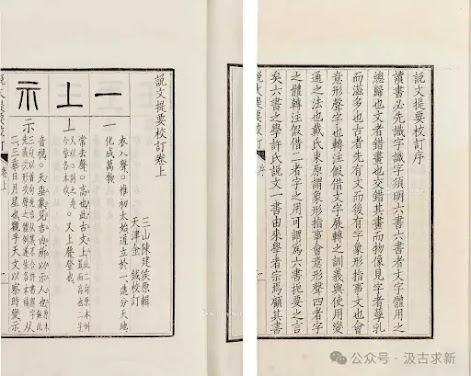 說文提要校訂序
讀書必先識字識字須明六書六書者文字體用之
總歸也文者錯畫也交錯其畫而物像見字者孳乳
而滋多也古者先有文而後有字象形指事文也會
意形聲字也轉注假借文字展轉之訓義與使用變
通之法也戴氏東原謂象形指事會意形聲四者字
之體轉注假借二者字之用可謂爲六書扼要之言
矣六書之學許氏說文一書由來學者宗焉顧其書
說文提要校訂 序
說文提要校訂卷上
三山陳建侯原輯
天津金 鉞校訂
一
一
衣入聲○惟初太始道立於一造分天地
化成萬物
上
上
常去聲○高也此古文上
又上聲登也
示
示
音視○天垂象見吉凶所以示人也
三垂日月星也觀乎天文以察時變示
說文提要校訂 卷上
公众号·汲古求新